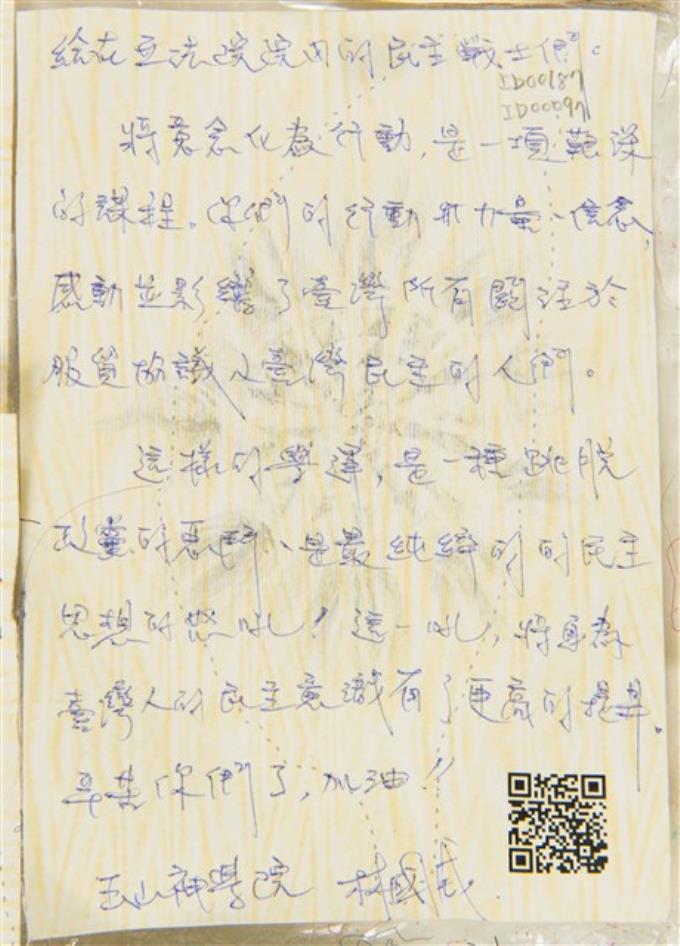 給在立法院院內的民主戰士們。
ID00187
ID00097
將意念化為行動,是一項艱深
的課程。你們的行動和力量、信念,
感動並影響了臺灣所有關注於
服貿協議及臺灣民主的人們。
這樣的學運,是一種跳脫
政黨的惡鬥、是最純粹的的民主
思想的怒吼!這一吼,將身為
臺灣人的民主意識有了更高的提昇。
辛苦你們了,加油!!
玉山神學院 林國